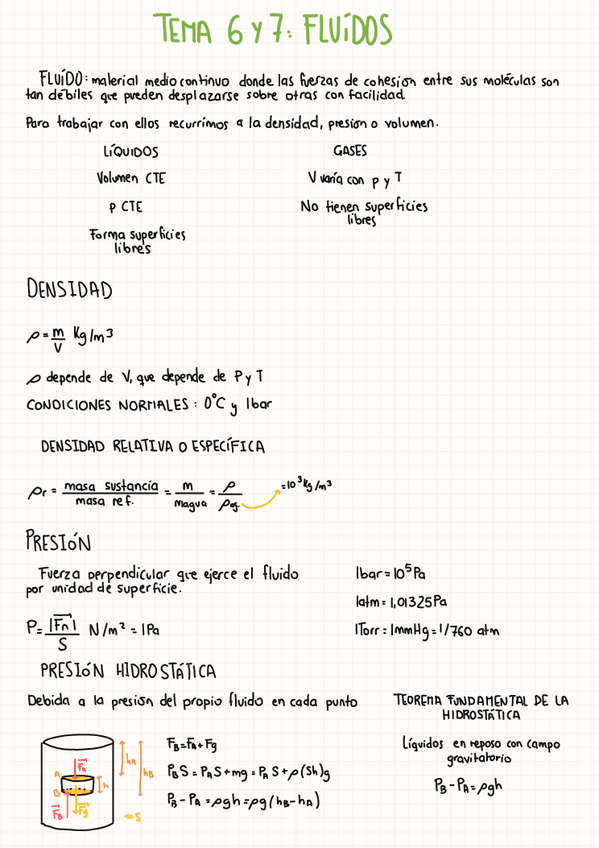 TEMA 6 Y 7: FLUÍDOS
FLUÍDO: material medio continuo donde las fuerzas de cohesion entre sus moléculas son
tan débiles que pueden desplazarse sobre otras con facilidad
Para trabajar con ellos recurrimos a la densidad, presión o volumen.
LÍQUIDOS
Volumen CTE
ρ CTE
Forma superficies
libres
GASES
V varía con p y T
No tienen superficies
libres
DENSIDAD
ρ = m/V Kg/m³
ρ depende de V, que depende de P y T
CONDICIONES NORMALES: 0°C y 1bar
DENSIDAD RELATIVA O ESPECÍFICA
ρr = masa sustancia/masa ref. = m/magua = ρ/ρag. =10³kg/m³
PRESIÓN
Fuerza perpendicular que ejerce el fluido
por unidad de superficie.
P = |Fn|/S N/m² = 1Pa
1bar = 10⁵Pa
1atm = 1,01325Pa
1Torr = 1mmHg = 1/760 atm
PRESIÓN HIDROSTÁTICA
Debida a la presión del propio fluido en cada punto
FA
A
B
FB
Fg
h
hA
hB
S
FB = FA + Fg
PBS = PAS + mg = PAS + ρ(Sh)g
PB - PA = ρgh = ρg(hB - hA)
TEOREMA FUNDAMENTAL DE LA
HIDROSTÁTICA
Líquidos en reposo con campo
gravitatorio
PB - PA = ρgh